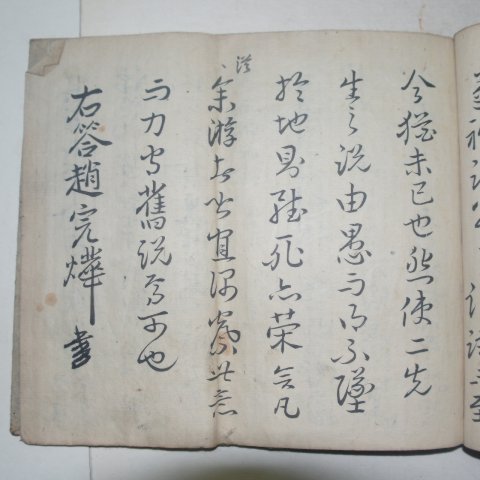 今猶未已也然使二先
生之說由愚而得不墜
於地則雖死亦榮矣凡
從余游者皆宜深察此意
而力守舊說焉可也
右答趙完燁書